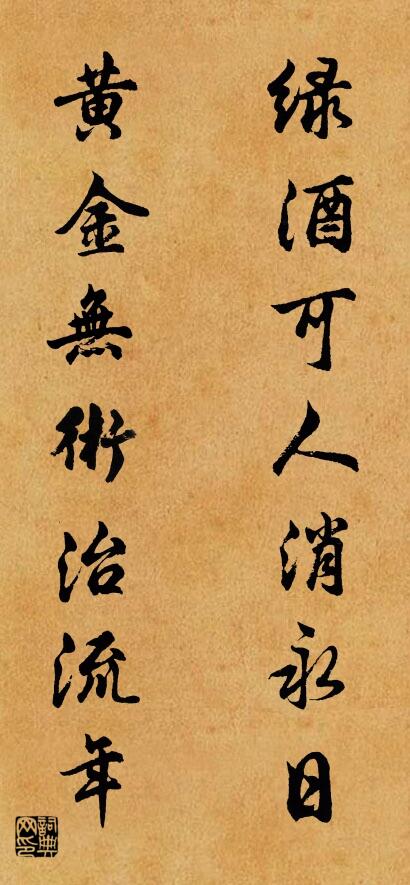 綠酒可人消永日
黃金無術治流年
詞典网印